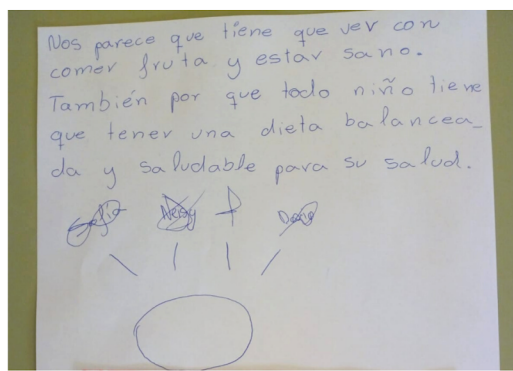 Nos parece que tiene que ver con
comer fruta y estar sano.
También por que todo niño tiene
que tener una dieta balancea_
da y saludable para su salud.